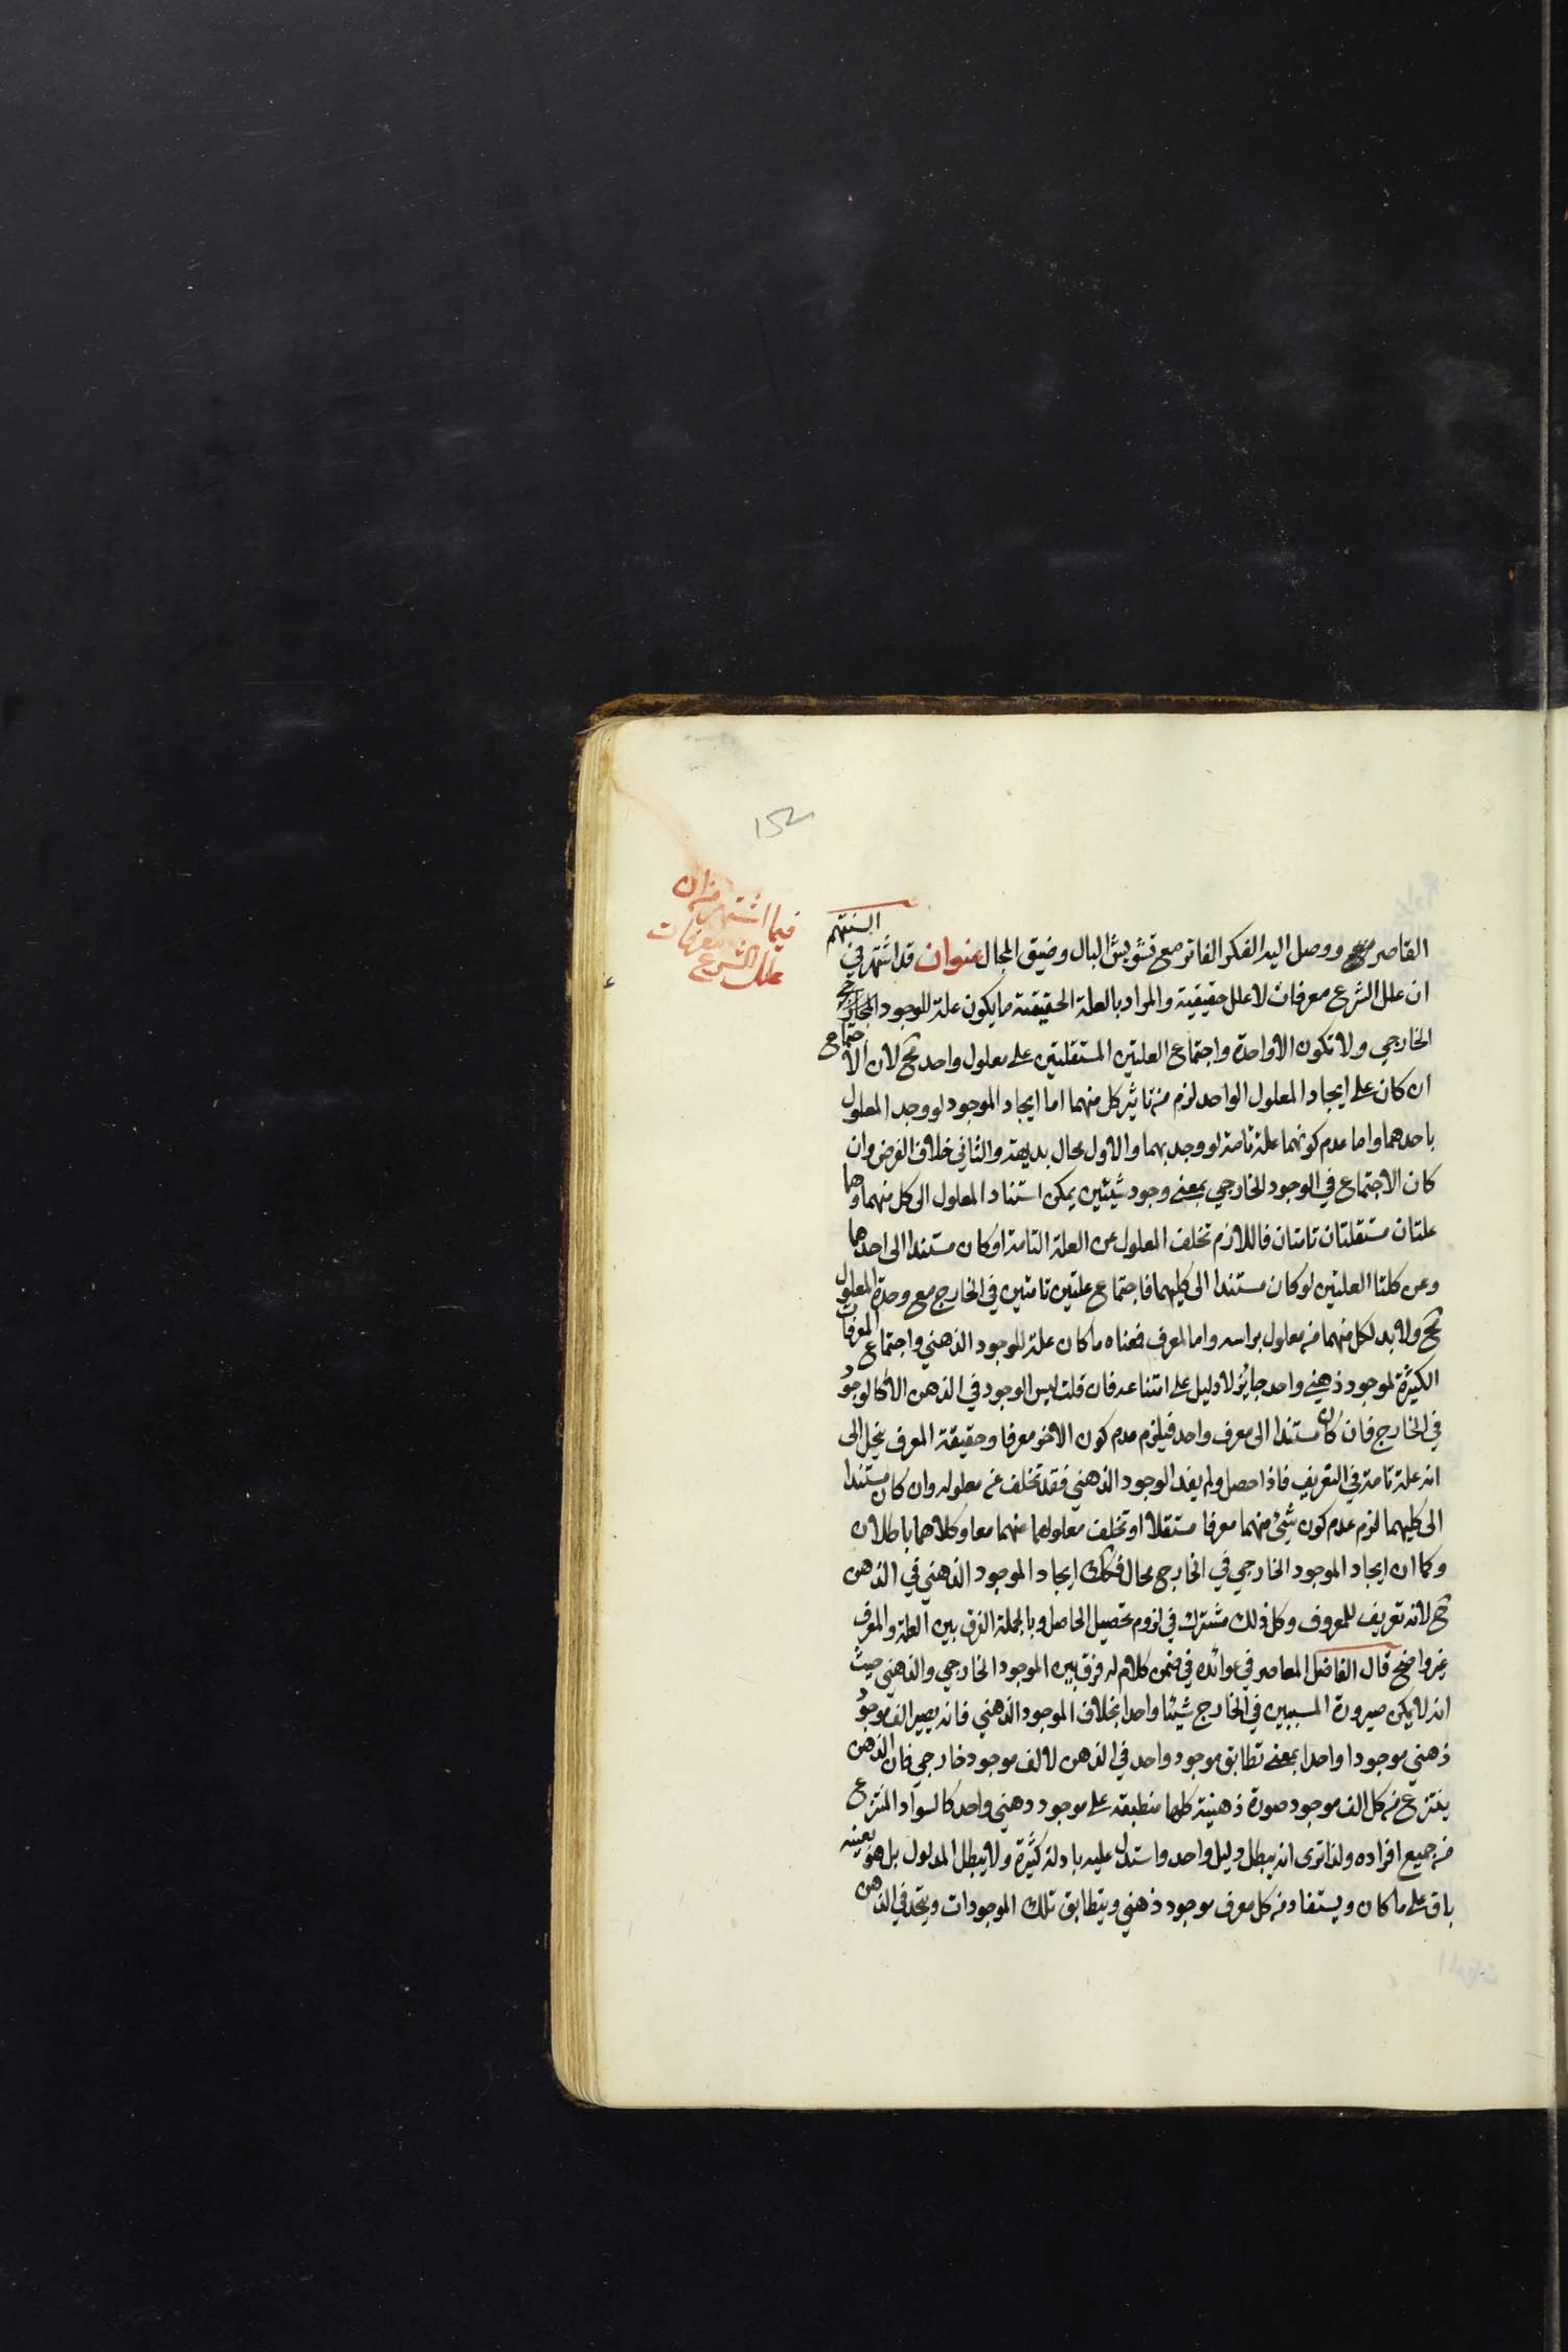 152
فيما اشتهر من ان
علل الشرع معرفات
القاصر ووصل اليد الفكر الفاتر مع تشويش البال وضيق المجال عنوان قد اشتهر في السنتهم
ان علل الشرع معرفات لا علل حقيقية والمراد بالعلة الحقيقة ما يكون علة للوجود
الخارجي ولا تكون الا واحدة واجتماع العلتين المستقلتين على معلول واحد مح لان الاجتماع
ان كان على ايجاد المعلول الواحد لزم من تاثير كل منهما اما ايجاد الموجود لو وجد المعلول
باحدهما واما عدم كونهما علة تامة لو وجد بهما والاول محال بديهة والثاني خلاف الفرض وان
كان الاجتماع في الوجود الخارجي بمعنى وجود شيئين يمكن استناد المعلول الى كل منهما وهما
علتان مستقلتان تامتان فاللازم تخلف المعلول عن العلة التامة لو كان مستندا الى احدهما
وعن كلتا العلتين لو كان مستندا الى كليهما فاجتماع علتين تامتين في الخارج مع وحدة المعلول
مح ولا بد لكل منهما من معلول براسه واما المعرف فمعناه ما كان علة للوجود الذهني واجتماع المعرفات
الكثيرة لموجود ذهني واحد جائز لا دليل على امتناعه فان قلت ليس الوجود في الذهن الا كالوجود
في الخارج فان كان مستندا الى معرف واحد فيلزم عدم كون الاخر معرفا وحقيقة المعرف ينحل الى
انه علة تامة في التعريف فاذا حصل ولم يفد الوجود الذهني فقد تخلف عن معلوله وان كان مستندا
الى كليهما لزم عدم كون شيئ منهما معرفا مستقلا او تخلف معلولهما عنهما معا وكلاهما باطلان
وكما ان ايجاد الموجود الخارجي في الخارج محال فكك ايجاد الموجود الذهني في الذهن
مح لانه تعريف للمعروف وكل ذلك مشترك في لزوم تحصيل الحاصل وبالجملة الفرق بين العلة والمعرف
غير واضح قال الفاضل المعاصر في عوائده في ضمن كلام له فرق بين الموجود الخارجي والذهني حيث
انه لا يمكن صيرورة المسببين في الخارج شيئا واحدا بخلاف الموجود الذهني فانه يصير الف موجود
ذهني موجودا واحدا بمعنى تطابق موجود واحد في الذهن لالف موجود خارجي فان الذهن
ينتزع من كل الف موجود صورة ذهنية كلها منطبقة على موجود ذهني واحد كالسواد المنتزع
من جميع افراده ولذا ترى انه يبطل دليل واحد واستدل عليه بادلة كثيرة ولا يبطل المدلول بل هو بعينه
باق على ما كان ويستفاد من كل معرف موجود ذهني ويتطابق تلك الموجودات ويتحد في الذهن